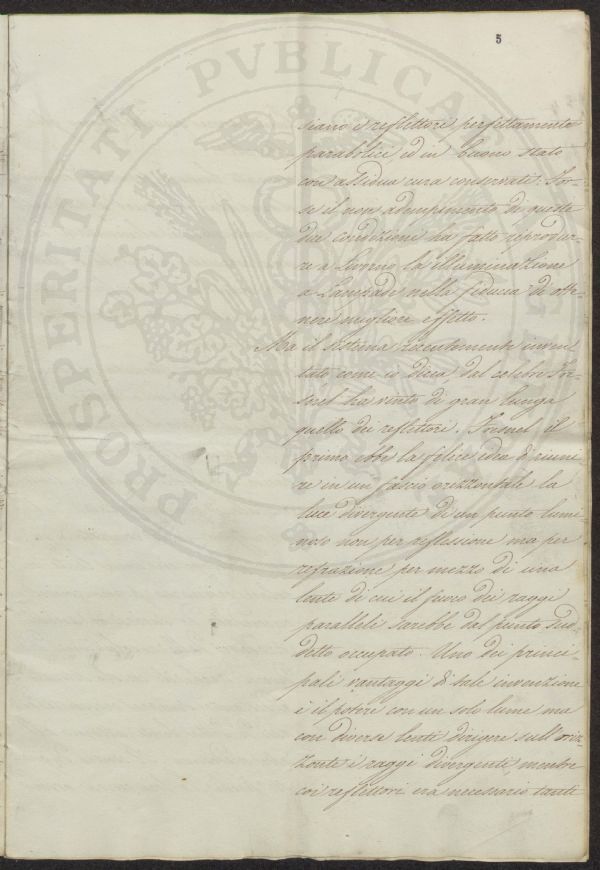 5
siano i reflettori perfettamente
parabolici ed in buono stato
con assidua cura conservati: For-
se il non adempimento di queste
due condizioni ha fatto riprodur-
re a Livorno la illuminazione
a Lampadi nella fiducia di otte-
nere migliore effetto.
Ma il sistema recentemente inven-
tato come io dicea, dal celebre
ha vinto di gran lunga
quello dei reflettori. il
primo ebbe la felice idea di riuni
re in un fascio orizzontale la
luce divergente di un punto lumi-
noso non per reflessione ma per
refrazione per mezzo di una
lente di cui il fuoco dei raggi
paralleli sarebbe dal punto sud
detto occupato. Uno dei princi-
pali vantaggi di tale invenzione
è il potere con un solo lume ma
con diverse lenti dirigere sull'oriz-
zonte i raggi divergenti, mentre
coi reflettori era necessario tanti
PROSPERITATI PVBLICAE